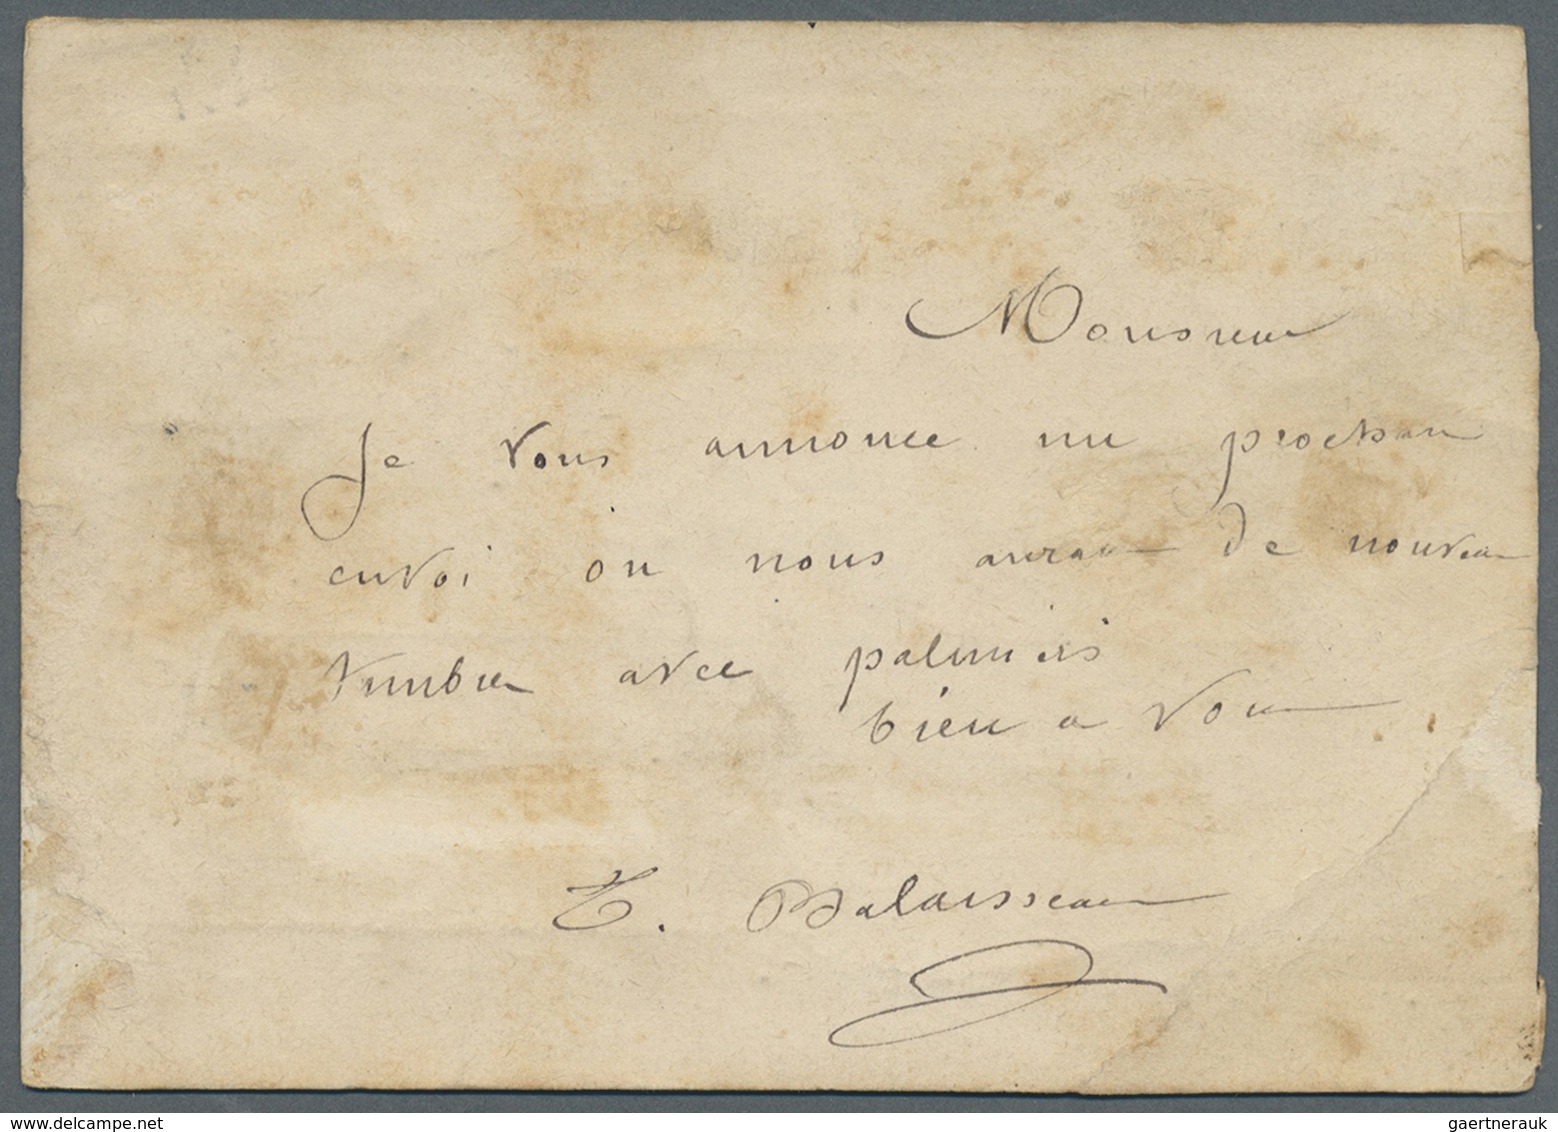 Monsieur
Je vous annonce un prochain
envoi où nous aurons de nouveau
timbres avec palmiers
bien a vous
T. Balaisseau
delcampe.net
gaertnerauk